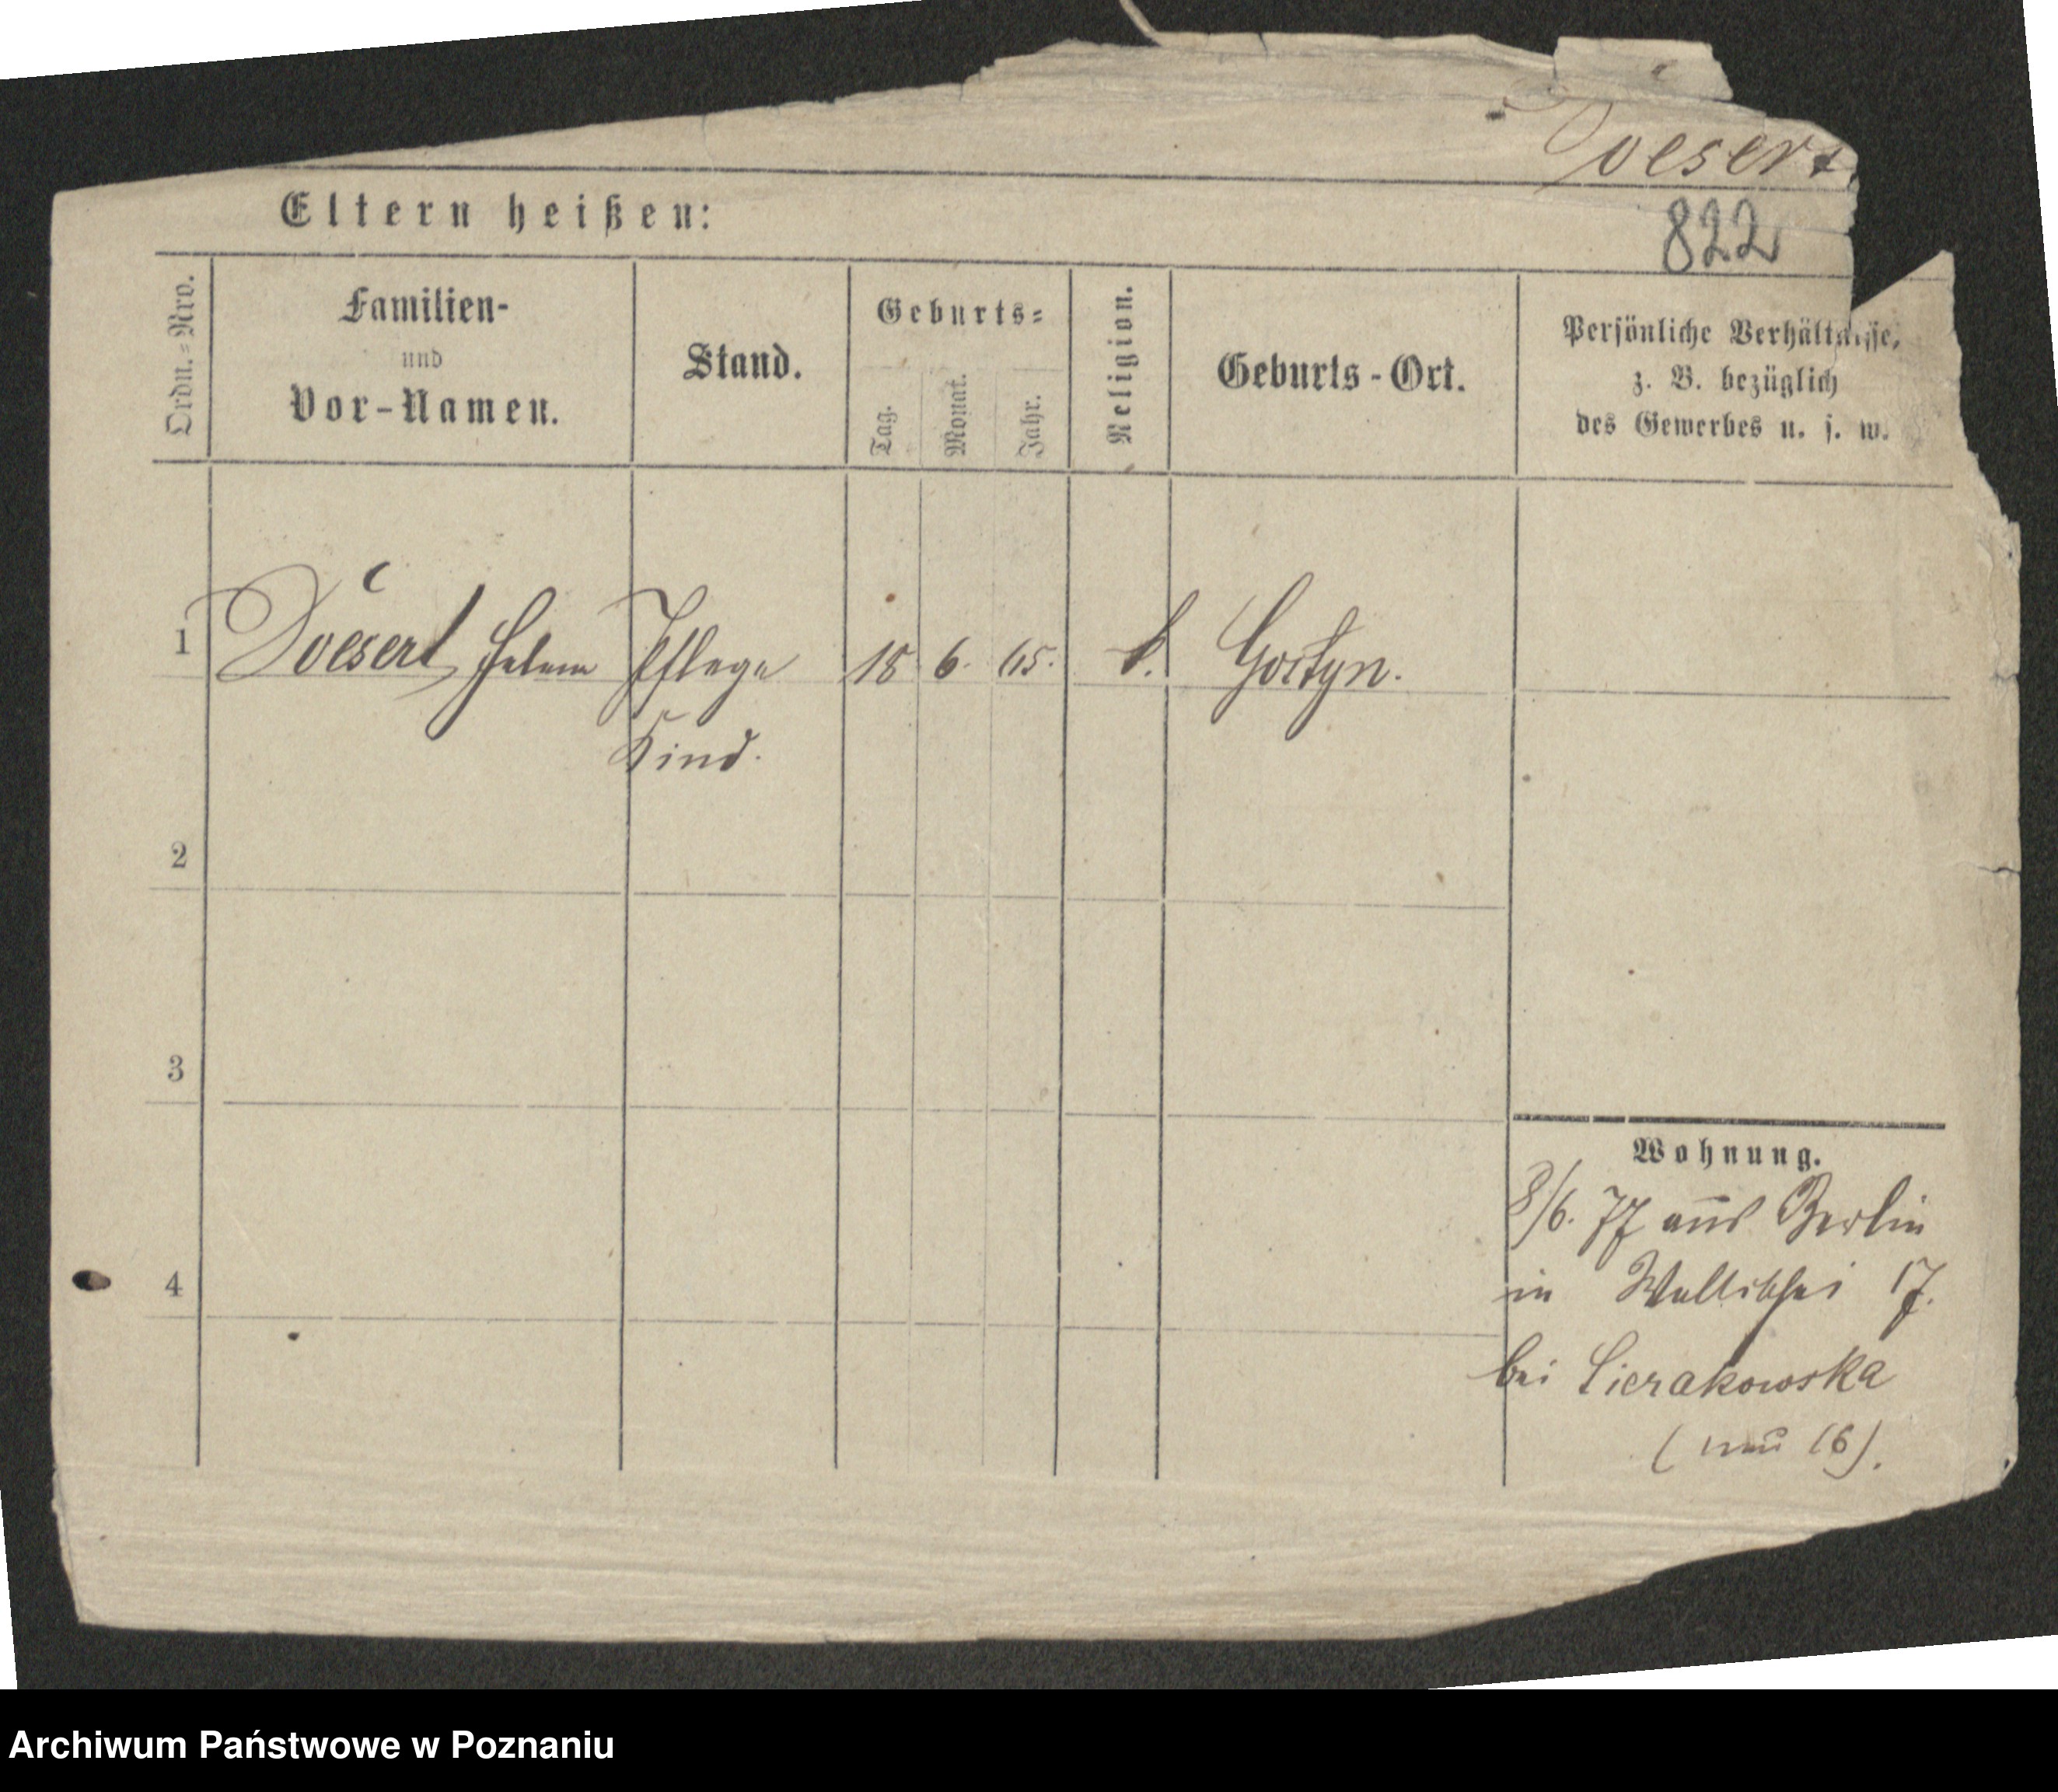 Doesert
822
Eltern heißen:
Ordn.=Nro.
Familien-
und
Vor-Namen.
Stand.
Geburts=
Tag.
Monat.
Jahr.
Religion.
Geburts-Ort.
Persönliche Verhältnisse,
z. B. bezüglich
des Gewerbes u. s. w.
1 Doesert, Helene Pflege 18 6. 65. k. Gostyn.
Kind.
2
3
4
Wohnung.
8/6. 77 aus Berlin
in Wallischei 17.
bei Sierakowska
(neu 16).
Archiwum Państwowe w Poznaniu